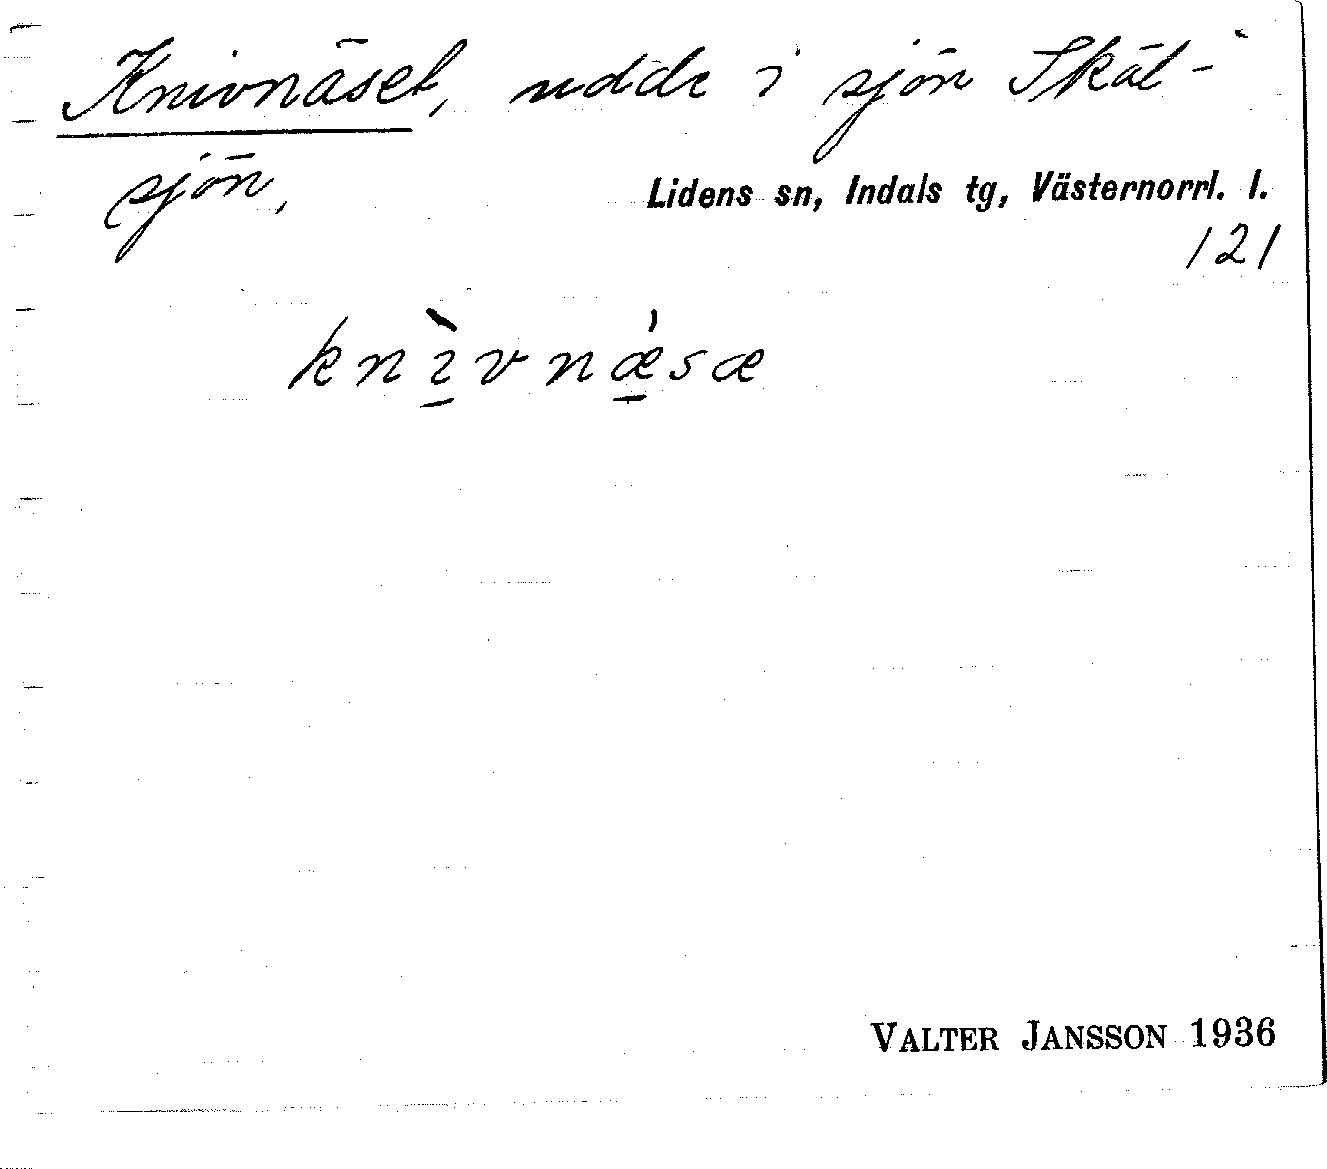 Knivnäset, udde i sjön Skäl-
sjön,
Lidens sn, Indals tg, Västernorrl. l.
121
knìvnǽsæ
VALTER JANSSON 1936